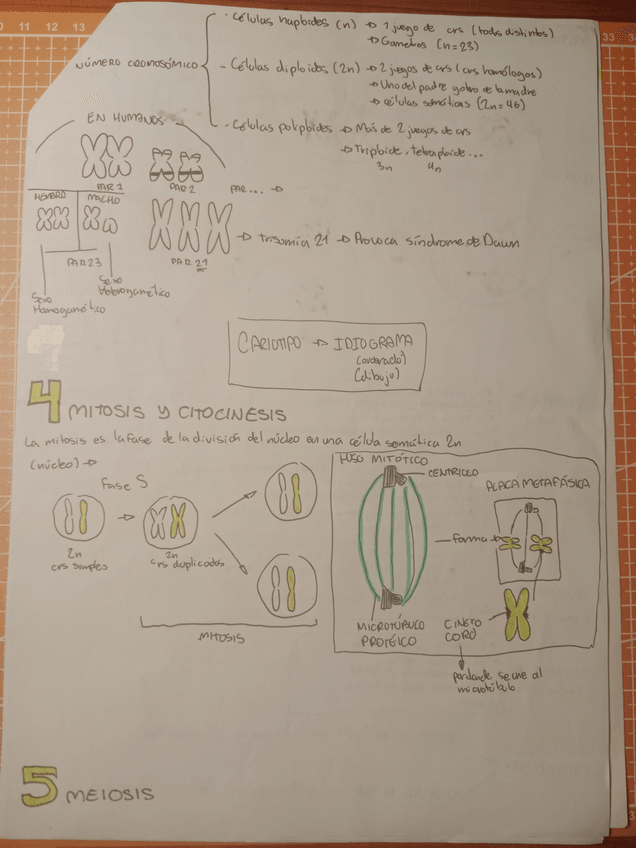 - Células haploides (n) → 1 juego de crs (todos distintos)
→ Gametos (n=23)
NÚMERO CROMOSÓMICO
- Células diploides (2n) → 2 juegos de crs (crs homólogos)
→ Uno del padre y otro de la madre
→ células somáticas (2n=46)
- Células poliploides → Más de 2 juegos de crs
→ Triploide, tetraploide...
3n 4n
EN HUMANOS
PAR 1
PAR 2
PAR... →
HEMBRA
MACHO
PAR 23
Sexo Homogamético
Sexo Heterogamético
PAR 21
→ trisomía 21 → Provoca síndrome de Dawn
CARIOTIPO → IDIOGRAMA
(ordenado)
(dibujo)
4 MITOSIS Y CITOCINESIS
La mitosis es la fase de la división del núcleo en una célula somática 2n
(núcleo) →
Fase S
2n
crs simples
2n
crs duplicados
MITOSIS
HUSO MITÓTICO
CENTRIOLO
PLACA METAFÁSICA
forma
MICROTÚBULO
PROTÉICO
CINETO
CORO
por donde se une al
microtúbulo
5 MEIOSIS
11 12 13
33 34